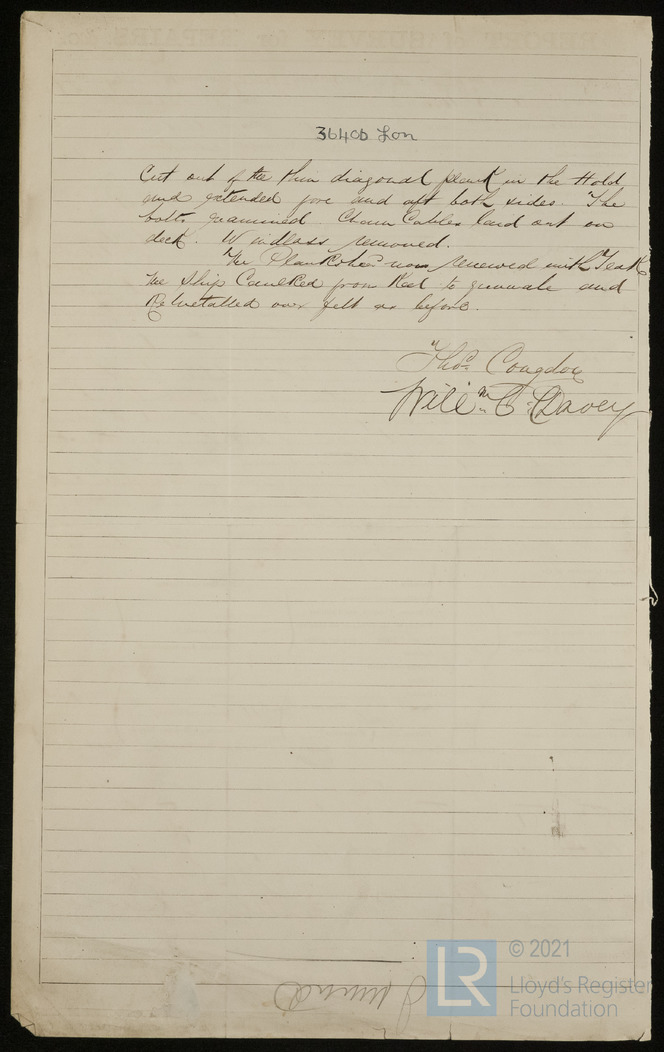 36400 Lon
Cut out of the thin diagonal plank in the Hold
and extended fore and aft both sides. The
bolts examined Chain Cables laid out on
deck. Windlass removed.
The Planksheer now renewed with Teak
The Ship Caulked from Keel to gunwale and
Remetalled over felt as before.
Thos Congdon
Willm C. Davey
LR
© 2021
Lloyd's Register
Foundation